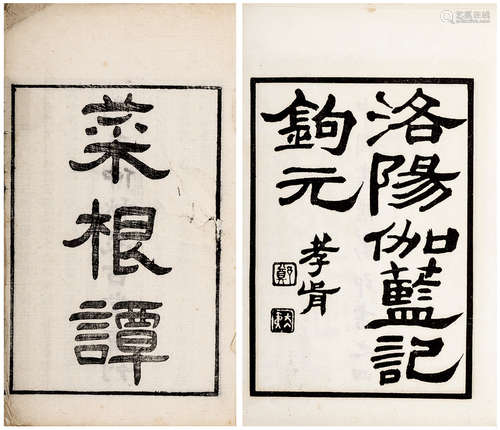 菜根譚
洛陽伽藍記
鉤元
孝胥